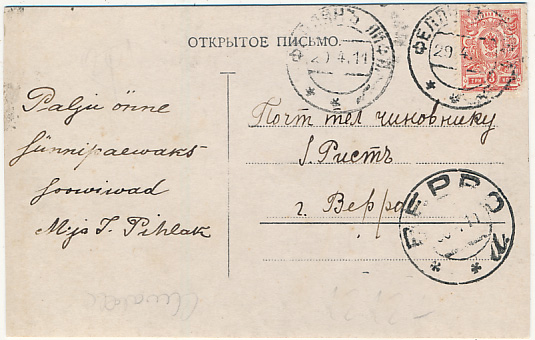 ОТКРЫТОЕ ПИСЬМО.
29.4.11
29.4.
Palju õnne
sünnipaewaks
soowiwad
Mijo J. Pihlak
Почт тел чиновнику
J. Ристъ
г. Верро
ВЕРРО
3